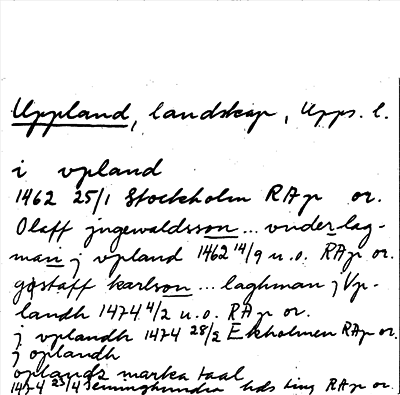 Uppland, landskap, Upps. l.
i vpland
1462 25/1 Stockholm RAp or.
Olaff jngewaldsson ... vnder lag-
man j vpland 1462 14/9 u.o. RAp or.
gøstaff karlson ... laghman j Vp-
landh 1474 4/2 u.o. RAp or.
j vplandh 1474 28/2 Ekholmen RAp or.
j oplandh
oplandz marka taal
1474 25/4 Seminghundra hds ting RAp or.